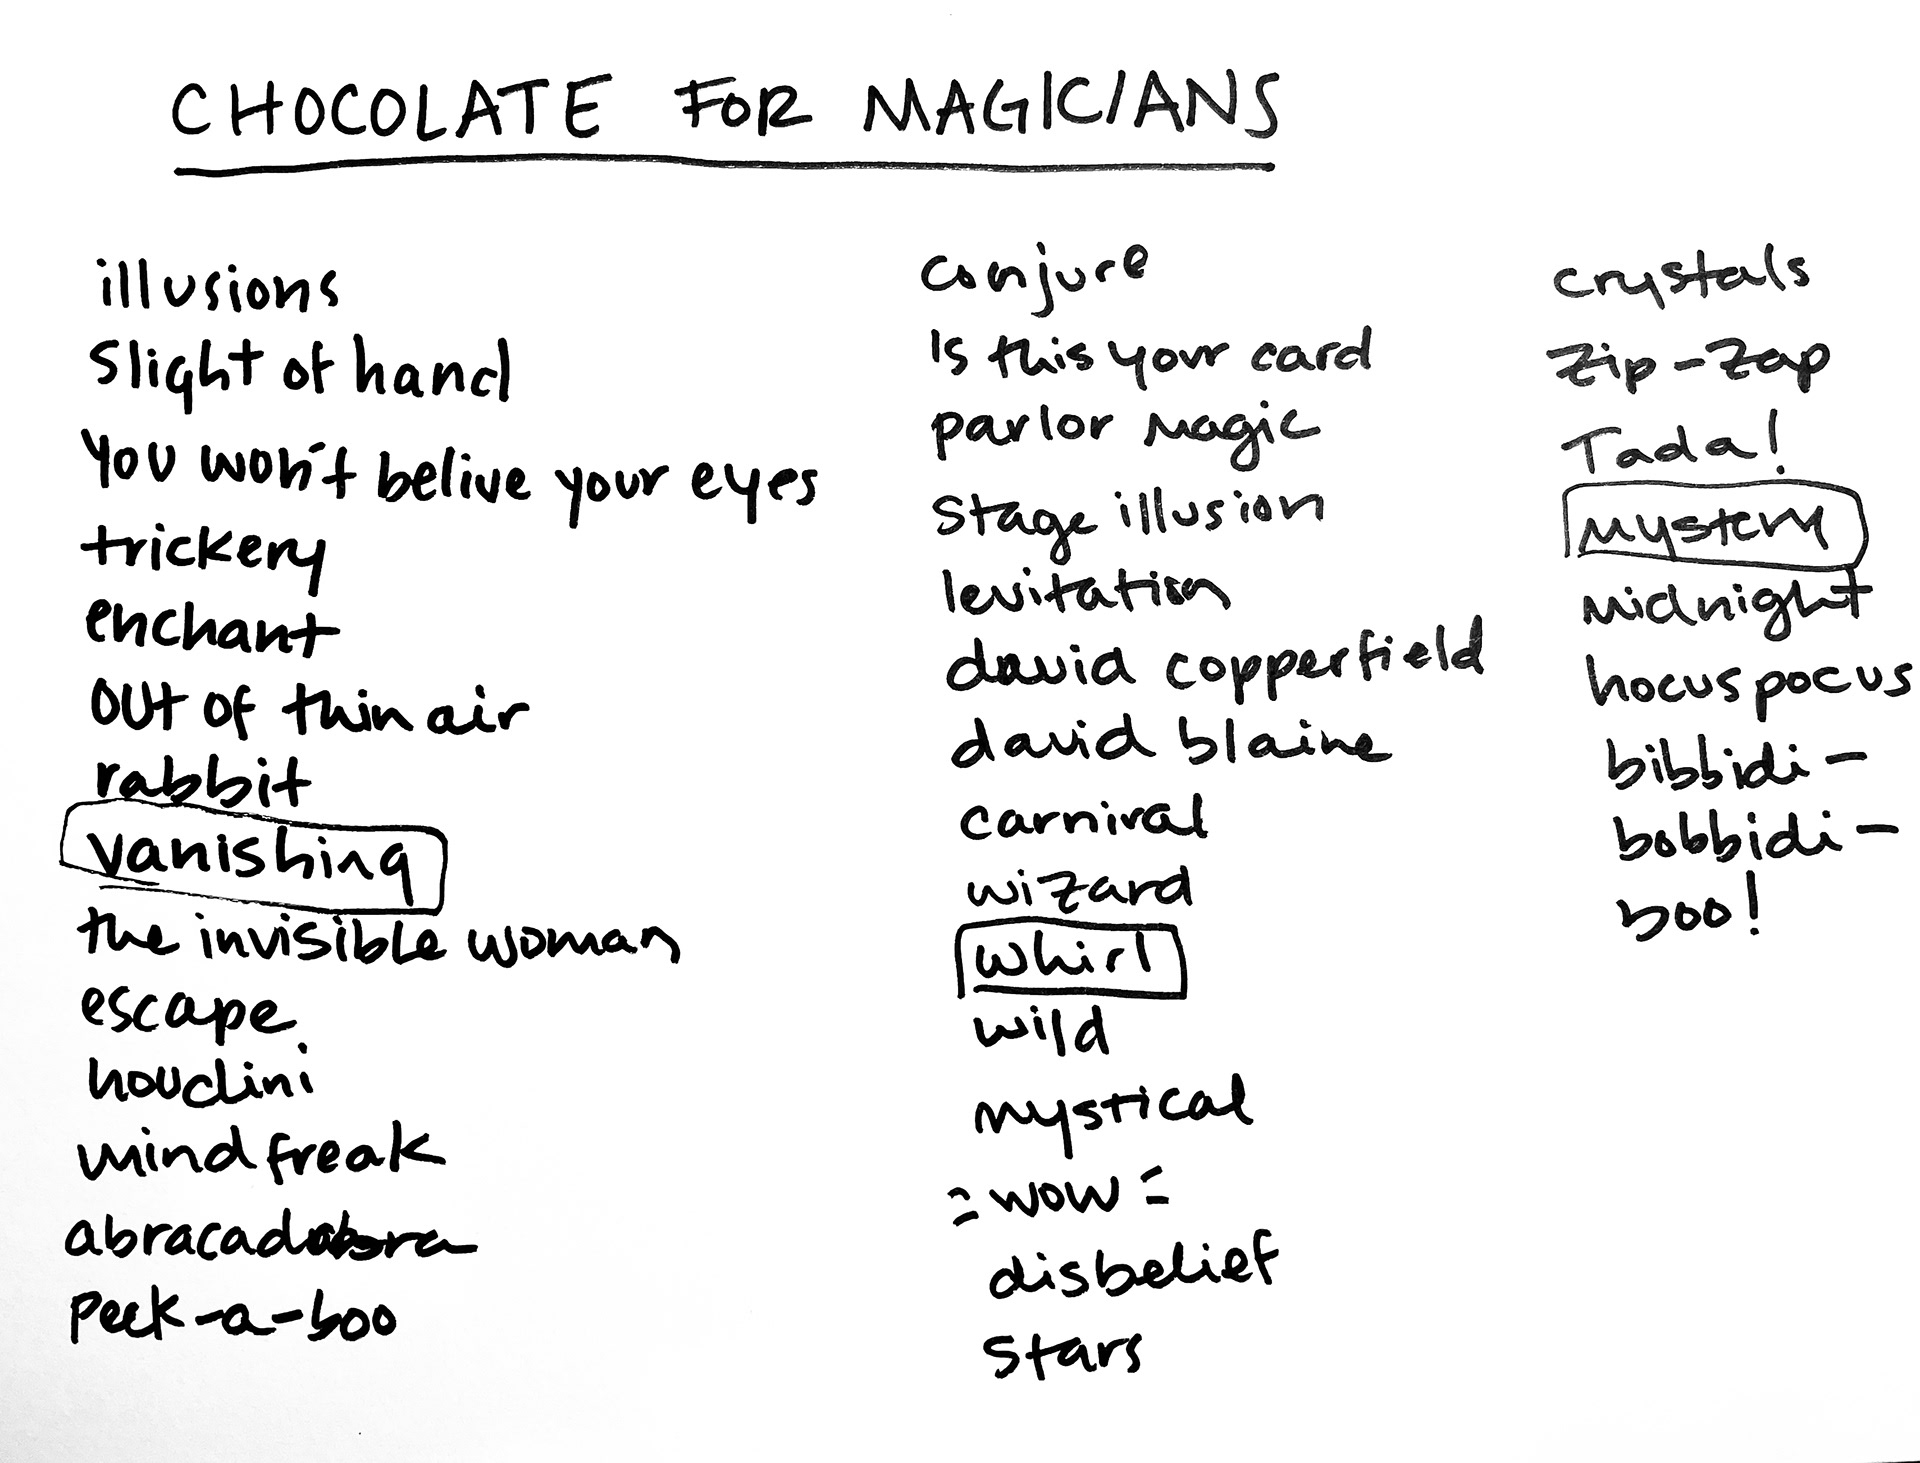 CHOCOLATE FOR MAGICIANS
illusions
Slight of hand
You won't belive your eyes
trickery
enchant
out of thin air
rabbit
vanishing
the invisible woman
escape
houdini
mindfreak
abracadabra
Peek-a-boo
conjure
Is this your card
parlor magic
stage illusion
levitation
david copperfield
david blaine
carnival
wizard
whirl
wild
mystical
= wow =
disbelief
stars
crystals
zip-zap
Tada!
mystery
midnight
hocus pocus
bibbidi-
bobbidi-
boo!